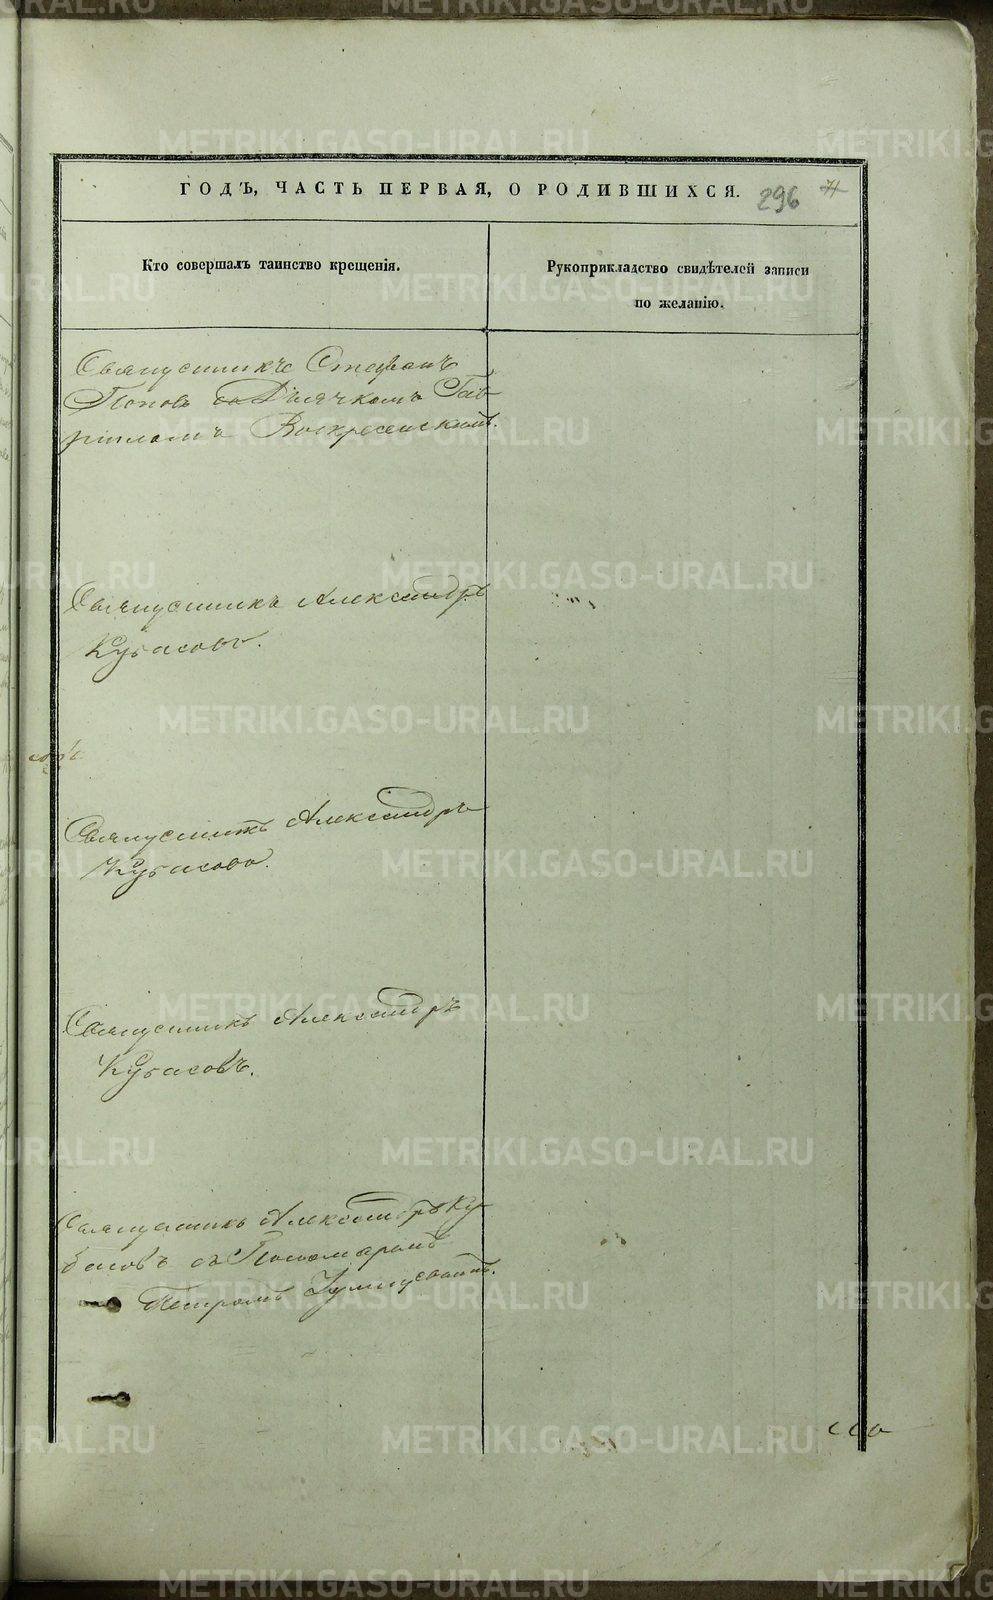 ГОДЪ, ЧАСТЬ ПЕРВАЯ, О РОДИВШИХСЯ. 296
Кто совершалъ таинство крещенія.
Рукоприкладство свидѣтелей записи
по желанію.
Священникъ Стефанъ
Поповъ со Дьячкомъ Гав
ріиломъ Воскресенскимъ.
Священникъ Александръ
Кубасовъ.
Священникъ Александръ
Кубасовъ.
Священникъ Александръ
Кубасовъ.
Священникъ Александръ Ку
басовъ съ Пономаремъ
Петромъ
METRIKI.GASO-URAL.RU